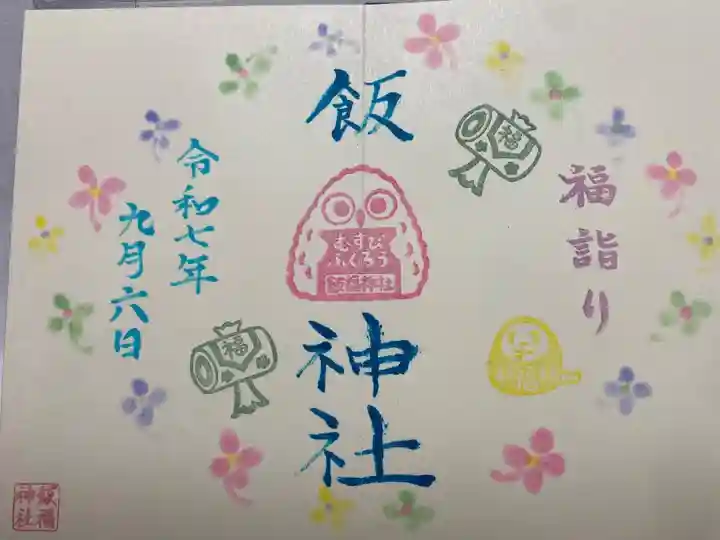 福詣り
飯
むすび
ふくろう
飯福神社
神社
福
福
令和七年
九月六日
飯福
神社